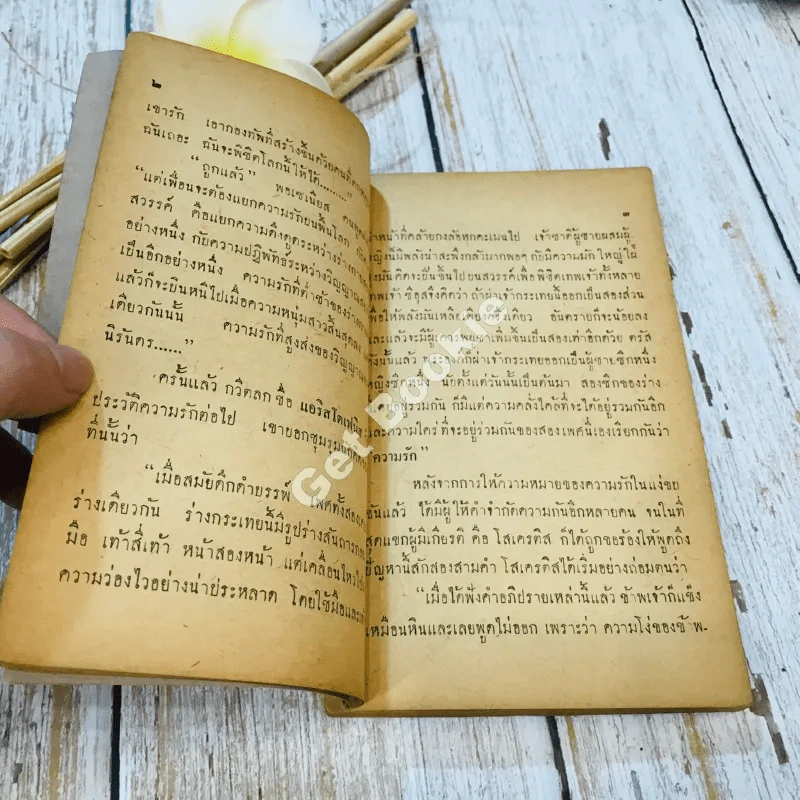 ๒
เขารัก เอากองทัพที่สร้างขึ้นด้วยคนที่
ฉันเถอะ ฉันจะพิชิตโลกนี้ให้ได้........"
"ถูกแล้ว" พอเซเนียส
"แต่เพื่อนจะต้องแยกความรักบนพื้นโลก
สวรรค์ คือแยกความดึงดูดระหว่างร่างกาย
อย่างหนึ่ง กับความปฏิพัทธ์ระหว่างวิญญาณ
เป็นอีกอย่างหนึ่ง ความรักที่ต่ำช้าของร่าง
แล้วก็จะบินหนีไปเมื่อความหนุ่มสาวสิ้นสุดลง
เดียวกันนั้น ความรักที่สูงส่งของวิญญาณ
นิรันดร......"
ครั้นแล้ว กวีตลก ชื่อ แอริสโตเฟนิส
ประวัติความรักต่อไป เขาบอกชุมรุม
ที่นั้นว่า
"เมื่อสมัยดึกดำบรรพ์ เพศทั้งสอง
ร่างเดียวกัน ร่างกระเทยนี้มีรูปร่างสัน
มือ เท้าสี่เท้า หน้าสองหน้า แต่เคลื่อนไหวไป
ความว่องไวอย่างน่าประหลาด โดยใช้มือและ
๓
หน้าที่คล้ายกงล้อหกคะเมนไป เจ้าชาติผู้ชายผสมผู้
หญิงนี้มีพลังน่าสะพึงกลัวมากพอๆ กับมีความมักใหญ่ใฝ่
มันคิดจะปีนขึ้นไปบนสวรรค์เพื่อพิชิตเทพเจ้าทั้งหลาย
เทพเจ้า ซิอุสจึงคิดว่า ถ้าผ่าเจ้ากระเทยนี้ออกเป็นสองส่วน
เพื่อให้พลังมันเหลือเพียงครึ่งเดียว อันตรายก็จะน้อยลง
และแล้วจะมีผู้เคารพบูชาเพิ่มขึ้นเป็นสองเท่าอีกด้วย ตรัส
ดังนั้นแล้ว พระองค์ก็ผ่าเจ้ากระเทยออกเป็นผู้ชายซีกหนึ่ง
หญิงซีกหนึ่ง นับตั้งแต่วันนั้นเป็นต้นมา สองซีกของร่าง
ได้อยู่รวมกัน ก็มีแต่ความคลั่งไคล้ที่จะได้อยู่รวมกันอีก
และความใคร่ที่จะอยู่ร่วมกันของสองเพศนี้เองเรียกกันว่า
ความรัก"
หลังจากการให้ความหมายของความรักในแง่ขบ
ขันแล้ว ได้มีผู้ให้คำจำกัดความกันอีกหลายคน จนในที่
สุดแขกผู้มีเกียรติ คือ โสเครตีส ก็ได้ถูกขอร้องให้พูดถึง
ปัญหานี้สักสองสามคำ โสเครตีสได้เริ่มอย่างถ่อมตนว่า
"เมื่อได้ฟังคำอภิปรายเหล่านี้แล้ว ข้าพเจ้าก็แข็ง
เหมือนหินและเลยพูดไม่ออก เพราะว่า ความโง่ของข้าพ-
Get Bookie